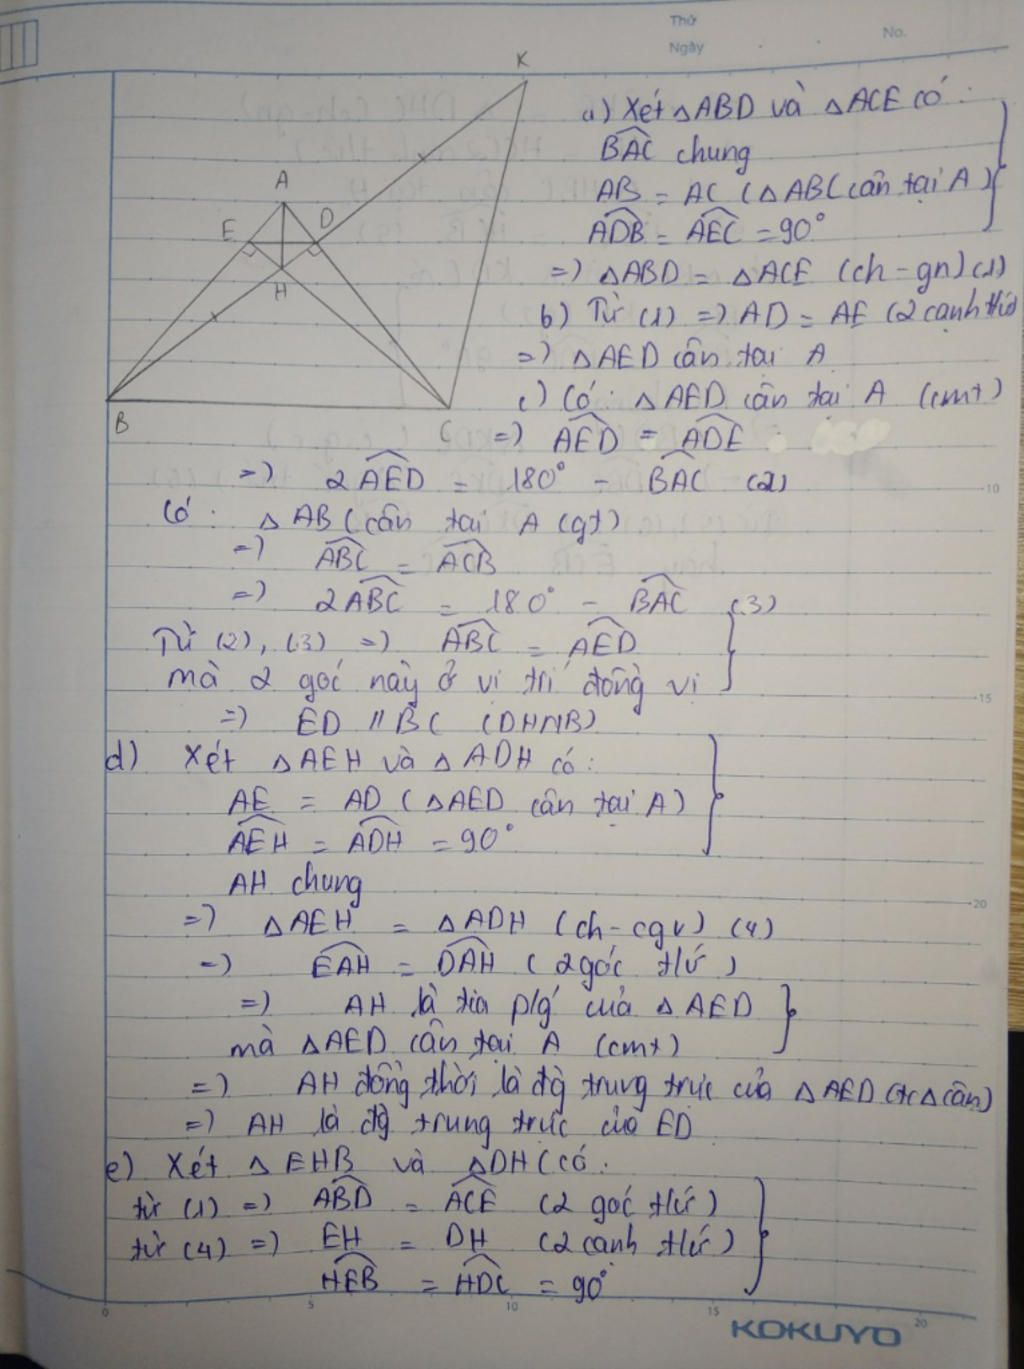 Thứ
Ngày
No.
K
A
E
D
H
B
C
a) Xét △ABD và △ACE có :
BAC chung
AB = AC (△ABC cân tại A)
ADB = AEC = 90°
=) △ABD = △ACE (ch - gn) (1)
b) Từ (1) =) AD = AE (2 cạnh tứ)
=) △AED cân tại A
c) Có : △AED cân tại A (cmt)
=) AED = ADE
=) 2AED = 180° - BAC (2)
Có : △ABC cân tại A (gt)
=) ABC = ACB
=) 2ABC = 180° - BAC (3)
Từ (2), (3) =) ABC = AED
mà 2 góc này ở vị trí đồng vị
=) ED // BC (DHNB)
d) Xét △AEH và △ADH có :
AE = AD (△AED cân tại A)
AEH = ADH = 90°
AH chung
=) △AEH = △ADH (ch - cgv) (4)
=) EAH = DAH (2 góc tứ)
=) AH là tia p/g của △AED
mà △AED cân tại A (cmt)
=) AH đồng thời là đg trung trực của △AED (tc△cân)
=) AH là đg trung trực của ED
e) Xét △EHB và △DHC có :
từ (1) =) ABD = ACE (2 góc tứ)
từ (4) =) EH = DH (2 cạnh tứ)
HEB = HDC = 90°
10
15
20
0 5 10 15 20
KOKUYO